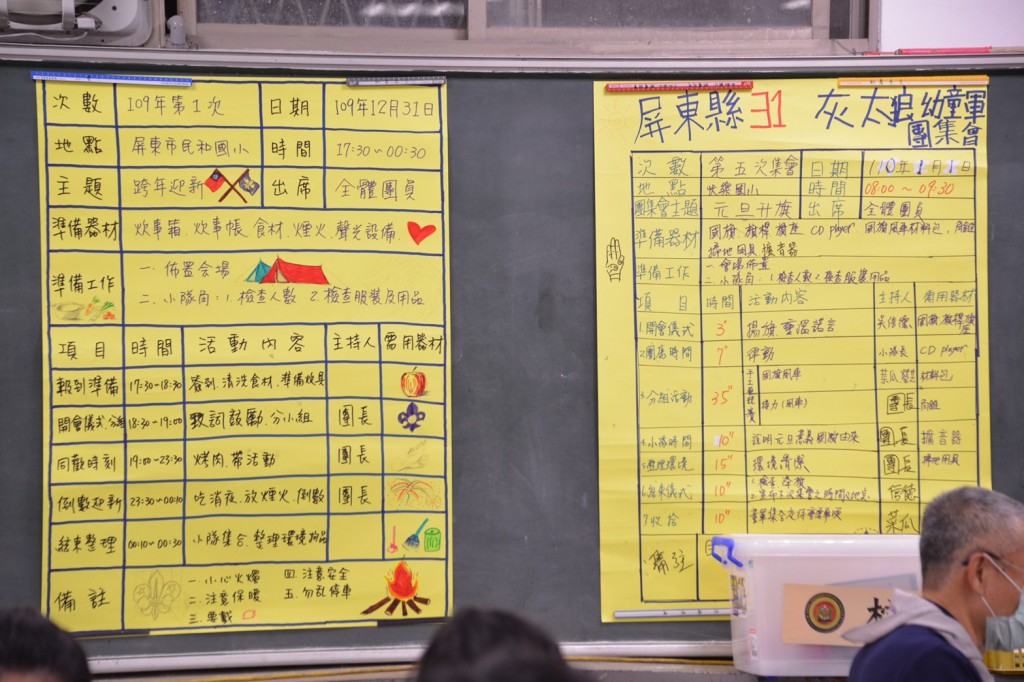 次數 109年第1次 日期 109年12月31日
地點 屏東市民和國小 時間 17:30~00:30
主題 跨年迎新 出席 全體團員
準備器材 炊事箱.炊事帳.食材.煙火.聲光設備.
準備工作 一.佈置會場
二.小隊角:1.檢查人數 2.檢查服裝及用品
項目 時間 活動內容 主持人 需用器材
報到準備 17:30~18:30 清洗食材.準備炊具
開會儀式.分組 18:30~19:00 致詞鼓勵.分小組 團長
同歡時刻 19:00~23:30 烤肉.帶活動 團長
倒數迎新 23:30~00:10 吃消夜.放煙火.倒數 團長
結束整理 00:10~00:30 小隊集合.整理環境物品
備註 一.小心火燭 四.注意安全
二.注意保暖 五.勿亂停車
三.要戴
屏東縣31 灰太狼幼童軍
團集會
次數 第五次集會 日期 110年1月1日
地點 快樂國小 時間 08:00~09:30
團集會主題 元旦升旗 出席 全體團員
準備器材 國旗.旗桿.旗座 CD player 國旗風車材料包.
掃地用具 擴音器
準備工作 一.會場佈置
二.小隊角:1.檢查人數 2.檢查服裝用品
項目 時間 活動內容 主持人 需用器材
1.開會儀式 3" 揚旗.重溫諾言 國旗.旗桿.旗座
2.團長時間 7" 律動 小隊長 CD player
3.分組活動 35" 國旗風車 菜瓜 材料包
接力(風車) 團長
4.小隊時間 10" 說明元旦意義 國旗由來 團長 擴音器
5.整理環境 15" 環境清潔 團長 掃地用具
6.結束儀式 10" 信德
7.收拾 10" 菜瓜
備註